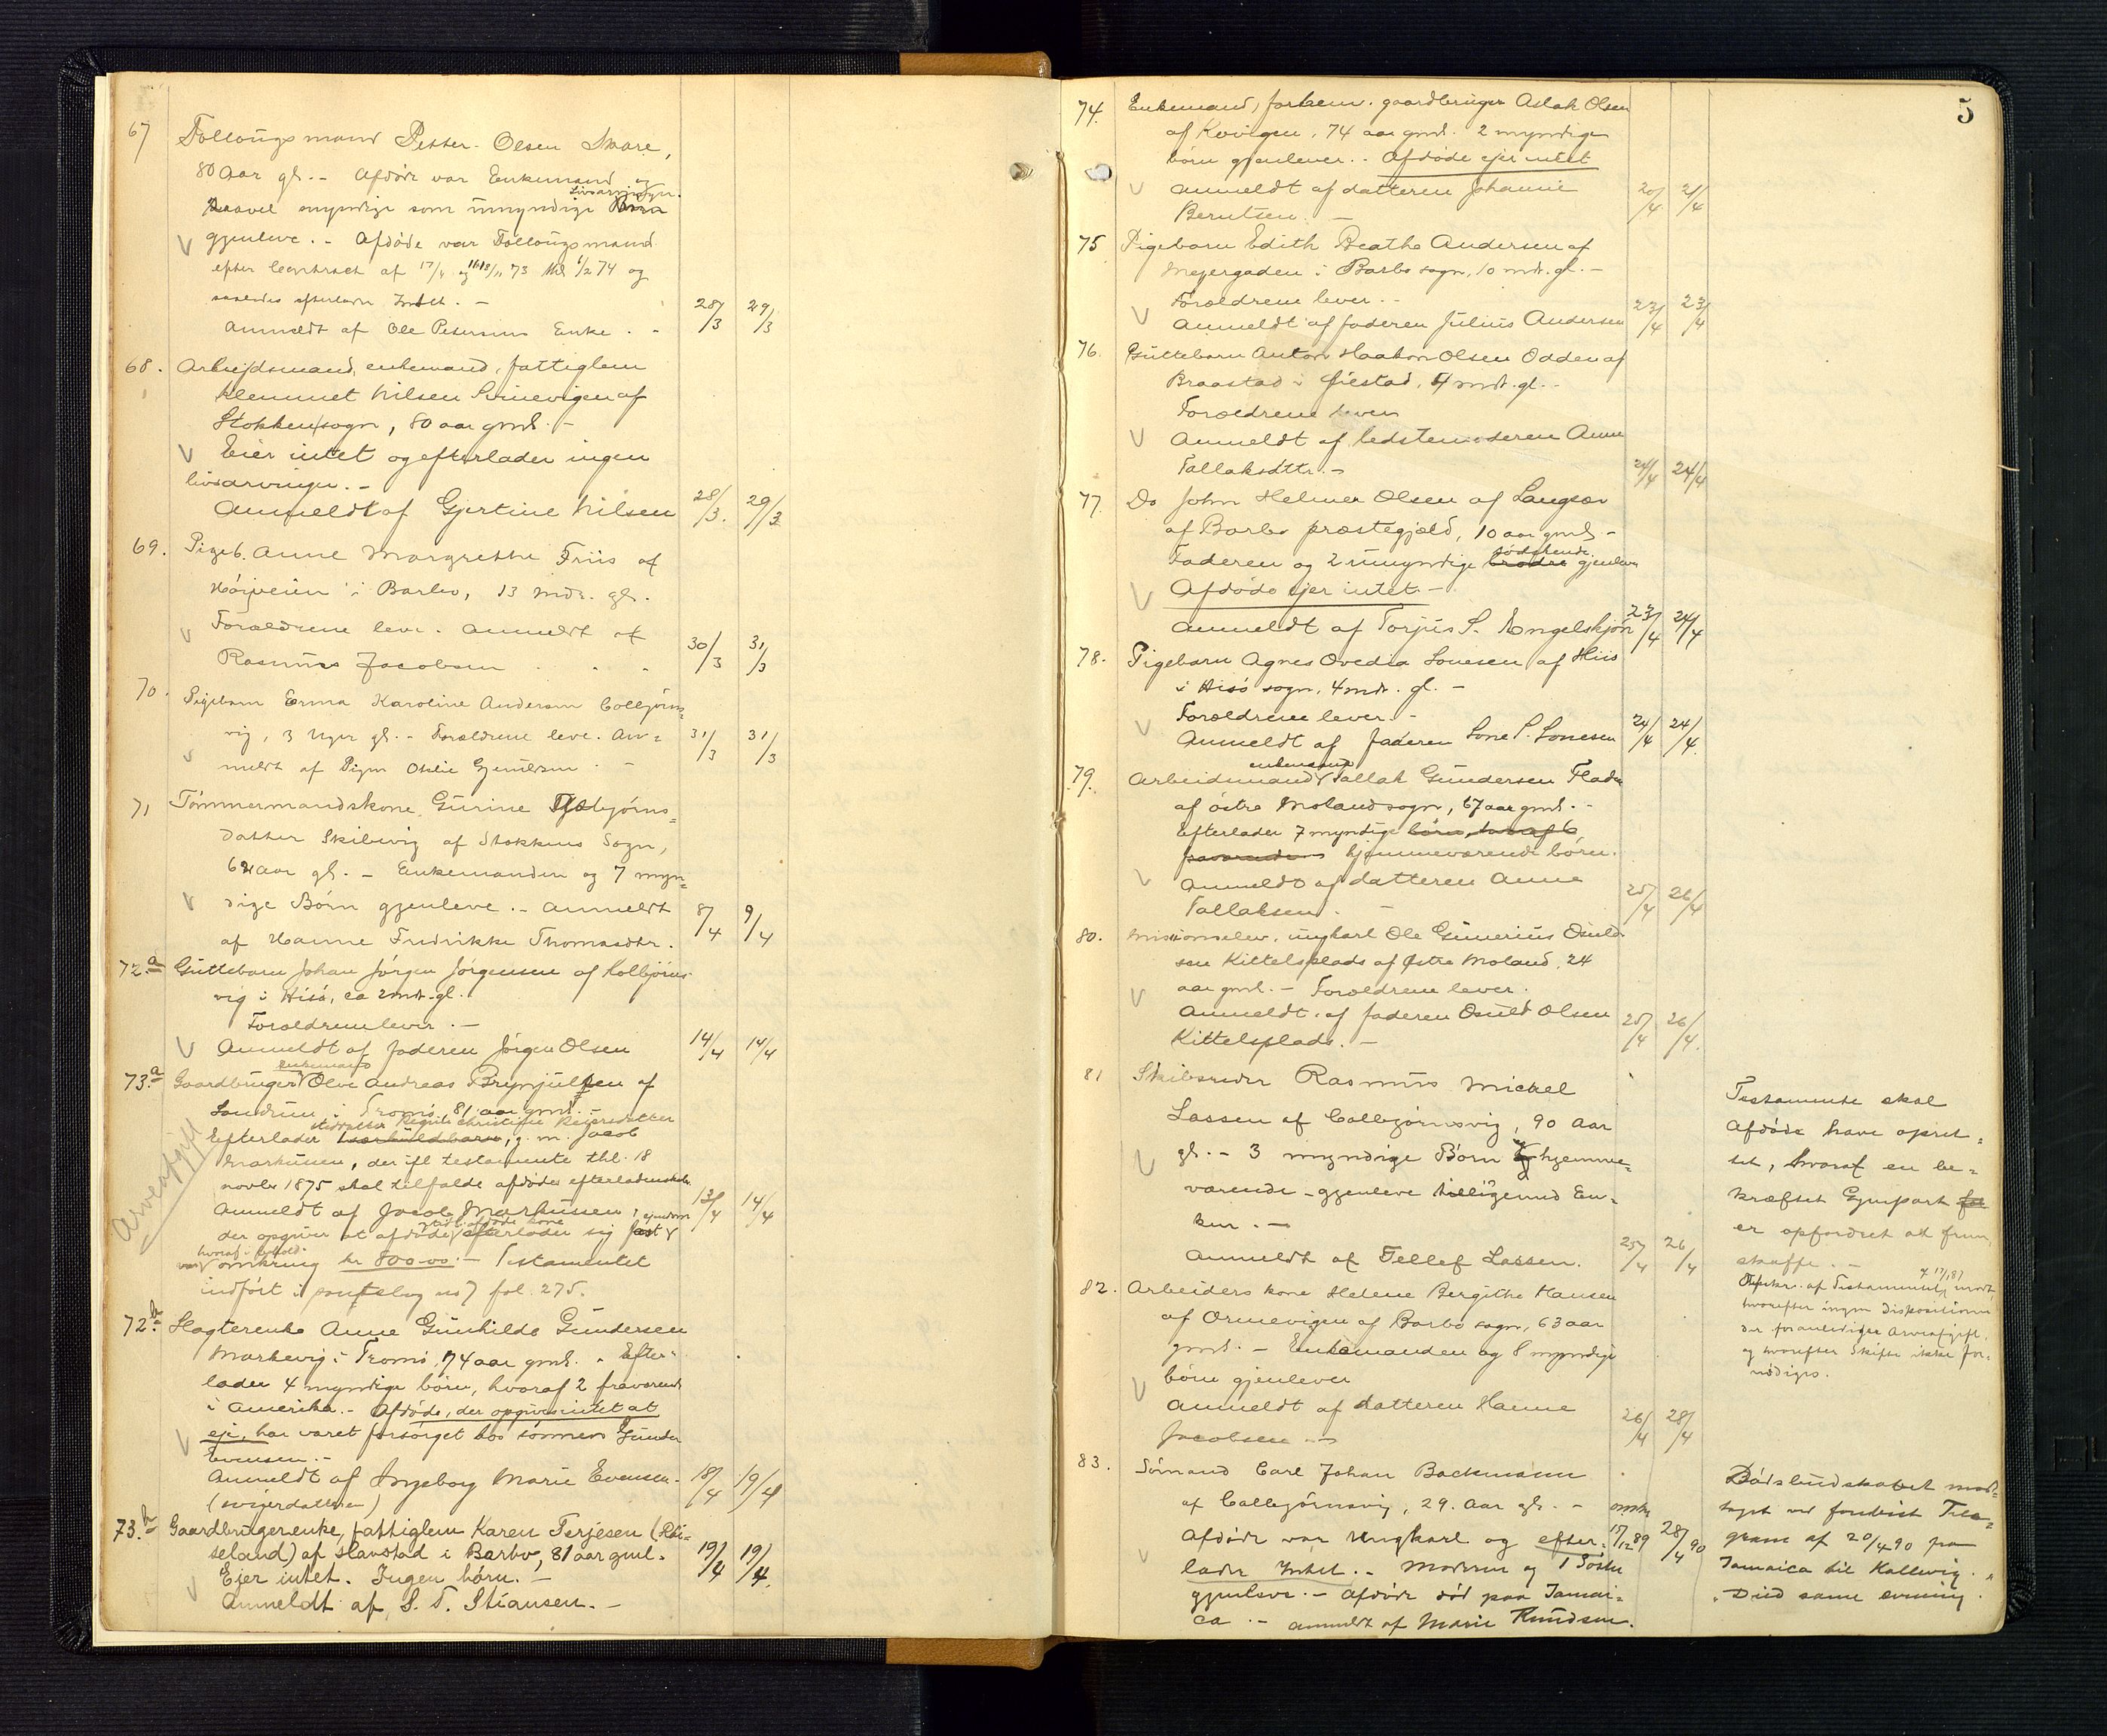 67 Follougsmand Petter Olsen Skare,
80 Aar gl. - Afdøde var Enkemand og
saavel myndige som umyndige Livsarvinger
gjenleve. - Afdøde var Follougsmand
efter Contract af 17/4 og 18/11 73 thl 6/2 74 og
saaledes efterlader Intet. -
Anmeldt af Ole Petersens Enke. - 28/3 29/3
68. Arbejdsmand, enkemand, fattiglem
Klemmet Nilsen Svinevigen af
Stokken sogn, 80 aar gml. -
Eier intet og efterlader ingen
livsarvinger. -
Anmeldt af Gjertine Nilsen 28/3. 29/3
69. Pigeb. Anne Margrethe Friis af
Høiveien i Barbo, 13 Mdr. gl.
Forældrene leve. Anmeldt af
Rasmus Jacobsen 30/3 31/3
70. Pigebarn Erma Karoline Andersen Colbjørns=
vig, 3 Uger gl. - Forældrene leve. An=
meldt af Pigen Othlie Gjeruldsen - 31/3 31/3
71 Tømmermandskone Gurine Gjebjørns=
datter Skilevig af Stokkens Sogn,
62 Aar gl. - Enkemanden og 7 myn=
dige Børn gjenleve. - Anmeldt 8/4 9/4
af Hanne Fredrikke Thomasdtr.
72.a Guttebarn Johan Jørgen Jørgensen af Kolbjørns
vig i Hisø, ca 2 mdr. gl.
Forældrene lever. -
Anmeldt af faderen Jørgen Olsen 14/4 14/4
73.a Gaardbruger enkemand Olve Andreas Brynjulsen af
Sandum i Tromø, 81 aar gml. -
steddatter Regine Christine Reiersdatter
Efterlader, g. m. Jacob
Markussen, der ifl testamente thl. 18
novbr 1875 skal tilfalde afdødes efterladenskab.
Anmeldt af Jacob Markussen, 13/4 14/4
der opgiver at afdøde efterlader sig fast ejendom
omkring kr 800-00. - Testamentet
indført i pantebog no 7 fol. 275.
Arveafgift
72.b Slagterenke Anne Gunhilde Gundersen
Markevig i Tromø, 74 aar gml. - Efter-
lader 4 myndige børn, hvoraf 2 fraværende
i Amerika. - Afdøde, der opgives intet at
eje, har været forsørget hos sønnen Gunder
Evensen. -
Anmeldt af Ingeborg Marie Evensen. 18/4 19/4
(svigerdatter)
73.b Gaardbrugerenke, fattiglem Karen Terjesen (Rei-
seland) af Slavstad i Barbo, 81 aar gml. 19/4 19/4.
Ejer intet. Ingen børn. -
Anmeldt af S. T. Stiansen. -
5
74. Enkemand, forhenv. gaardbruger Aslak Olsen
af Kovigen, 74 aar gml. 2 myndige
børn gjenlever. - Afdøde ejer intet
Anmeldt af datteren Johanne 20/4 21/4
Berntsen. -
75 Pigebarn Edith Beathe Andersen af
Mejergaden i Barbo sogn, 10 mdr. gl. -
Forældrene lever. -
Anmeldt af faderen Julius Andersen 23/4 23/4
76. Guttebarn Anton Haakon Olsen Odden af
Braastad i Øiestad, 4 mdr. gl. -
Forældrene lever
Anmeldt af bedstemoderen Anne
Tallaksdttr. - 24/4 24/4
77. Do John Helmer Olsen af Langsæv
af Barbo præstegjæld, 10 aar gml. -
Faderen og 2 umyndige brødre sødskende gjenlever
Afdøde ejer intet. -
Anmeldt af Torjus S. Engelskjøn 23/4 24/4
78. Pigebarn Agnes Ovedia Sonesen af Hiis
i Hisø sogn, 4 mdr. gl. -
Forældrene lever. -
Anmeldt af faderen Sone S. Sonesen 24/4 24/4.
79. Arbeidsmand enkemand Tallak Gundersen Flade
af østre Moland sogn, 67 aar gml. -
Efterlader 7 myndige børn, hvoraf 6
fraværende hjemmeværende børn.
Anmeldt af datteren Anne
Tallaksen. - 25/4 26/4
80. Missionselev, ungkarl Ole Gunerius Osuld-
sen Kittelsplads af Østre Moland, 24
aar gml. - Forældrene lever.
Anmeldt af faderen Osuld Olsen
Kittelsplads. - 25/4 26/4.
81 Skibsreder Rasmus Mickel
Lassen af Colbjørnsvig, 90 Aar
gl. - 3 myndige Børn hjemme=
værende - gjenleve tilligemed En=
ken. -
Anmeldt af Tellef Lassen. 25/4 26/4
Testamente skal
Afdøde have opret=
tet, hvoraf en be=
kræftet Gjenpart
er opfordret at frem
skaffe. -
Udskr. af Testamente af 17/1 87 modt,
hvorefter ingen Dispositioner
der foranlediger Arveafgift,
og hvorefter Skifte ikke for-
nødiges.
82. Arbeiders kone Helene Bergithe Hansen
af Ormevigen af Barbo sogn, 63 aar
gml. - Enkemanden og 8 myndige
børn gjenlever
Anmeldt af datteren Hanne
Jacobsen - 26/4 28/4
83. Sømand Carl Johan Backmann
af Colbjørnsvig, 29. Aar gl. -
Afdøde var Ungkarl og efter= omtr 17/12 89 28/4 90
lader Intet. - Moderen og 1 Søster
gjenleve. - Afdøde død paa Jamai=
ca. - anmeldt af Marie Knudsen.
Dødsbudskabet mod=
taget ved forevist Tele=
gram af 20/4 90 fra
Jamaica til Kallevig.
"Died same evening."